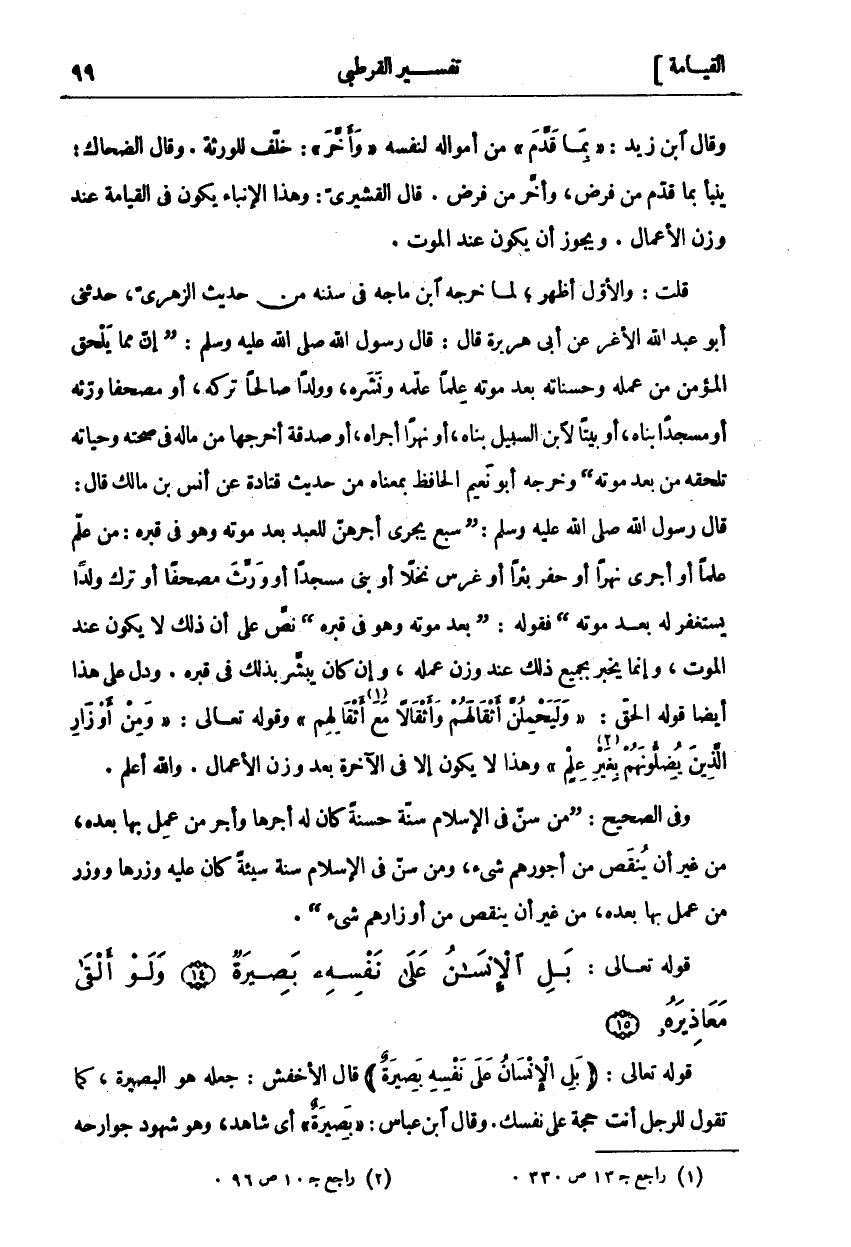 القيامة ] تفسير القرطبي ٩٩
وقال ٱبن زيد : « بِمَا قَدَّمَ » من أمواله لنفسه « وَأَخَّرَ » : خلّف للورثة . وقال الضحاك :
ينبأ بما قدّم من فرض، وأخّر من فرض . قال القشيرىّ : وهذا الإنباء يكون فى القيامة عند
وزن الأعمال . ويجوز أن يكون عند الموت .
قلت : والأوّل أظهر ؛ لما خرجه ٱبن ماجه فى سننه من حديث الزهرىّ ، حدثنى
أبو عبد الله الأغر عن أبى هريرة قال : قال رسول الله صلى الله عليه وسلم : ” إنّ مما يَلْحق
المؤمن من عمله وحسناته بعد موته عِلماً علّمه ونَشَره، وولدًا صالحاً تركه ، أو مصحفا ورّثه
أو مسجدًا بناه، أو بيتًا لآبن السبيل بناه ، أو نهرًا أجراه، أو صدقة أخرجها من ماله فى صحته وحياته
تلحقه من بعد موته“ وخرجه أبو نُعيم الحافظ بمعناه من حديث قتادة عن أنس بن مالك قال :
قال رسول الله صلى الله عليه وسلم : ” سبع يجرى أجرهنّ للعبد بعد موته وهو فى قبره : من علّم
علماً أو أجرى نهرًا أو حفر بئراً أو غرس نخلًا أو بنى مسجدًا أو ورَّثَ مصحفًا أو ترك ولدًا
يستغفر له بعد موته “ فقوله : ” بعد موته وهو فى قبره “ نصّ على أن ذلك لا يكون عند
الموت ، وإنما يخبر بجميع ذلك عند وزن عمله ، وإن كان يبشَّر بذلك فى قبره . ودل على هذا
أيضا قوله الحقّ : « وَلَيَحْمِلُنَّ أَثْقَالَهُمْ وَأَثْقَالًا مَعَ أَثْقَالِهِم » (١) وقوله تعالى : « وَمِنْ أَوْزَارِ
الَّذِينَ يُضِلُّونَهُمْ بِغَيْرِ عِلْمٍ » (٢) وهذا لا يكون إلا فى الآخرة بعد وزن الأعمال . والله أعلم .
وفى الصحيح : ”من سنّ فى الإسلام سنّة حسنةً كان له أجرها وأجر من عمِل بها بعده،
من غير أن يُنقَص من أجورهم شىء، ومن سنّ فى الإسلام سنة سيئةً كان عليه وزرها ووزر
من عمل بها بعده، من غير أن ينقص من أوزارهم شىء “ .
قوله تعالى : بَلِ ٱلْإِنسَٰنُ عَلَىٰ نَفْسِهِۦ بَصِيرَةٌ ﴿١٤﴾ وَلَوْ أَلْقَىٰ
مَعَاذِيرَهُۥ ﴿١٥﴾
قوله تعالى : ﴿ بَلِ الْإِنْسَانُ عَلَى نَفْسِهِ بَصِيرَةٌ ﴾ قال الأخفش : جعله هو البصيرة ، كما
تقول للرجل أنت حجة على نفسك . وقال ٱبن عباس : « بَصِيرَةٌ » أى شاهد، وهو شهود جوارحه
(١) راجع جـ ١٣ ص ٣٣٠ . (٢) راجع جـ ١٠ ص ٩٦ .